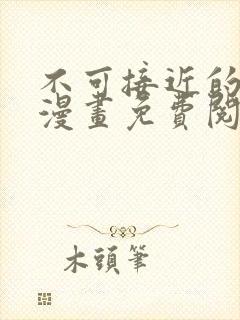 不可接近的
漫畫免費閱
木頭筆